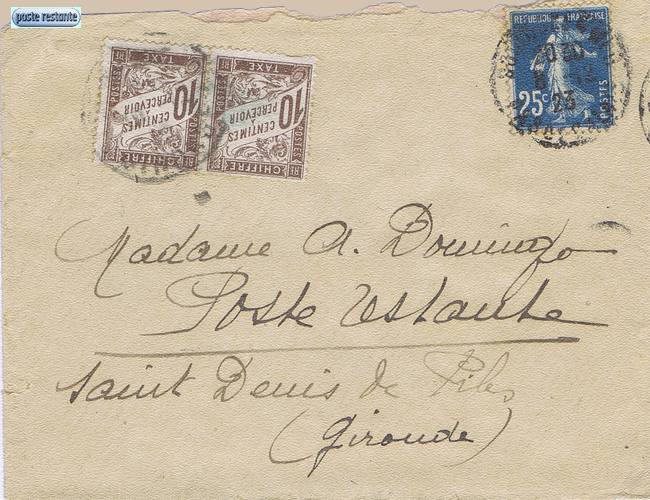 poste restante
10 CENTIMES À PERCEVOIR
POSTES
TAXE
CHIFFRE
RE
10 CENTIMES À PERCEVOIR
POSTES
TAXE
CHIFFRE
RE
REPUBLIQUE FRANÇAISE
25c
POSTES
23
Madame A. Domingo
Poste restante
Saint Denis de Piles
(Gironde)